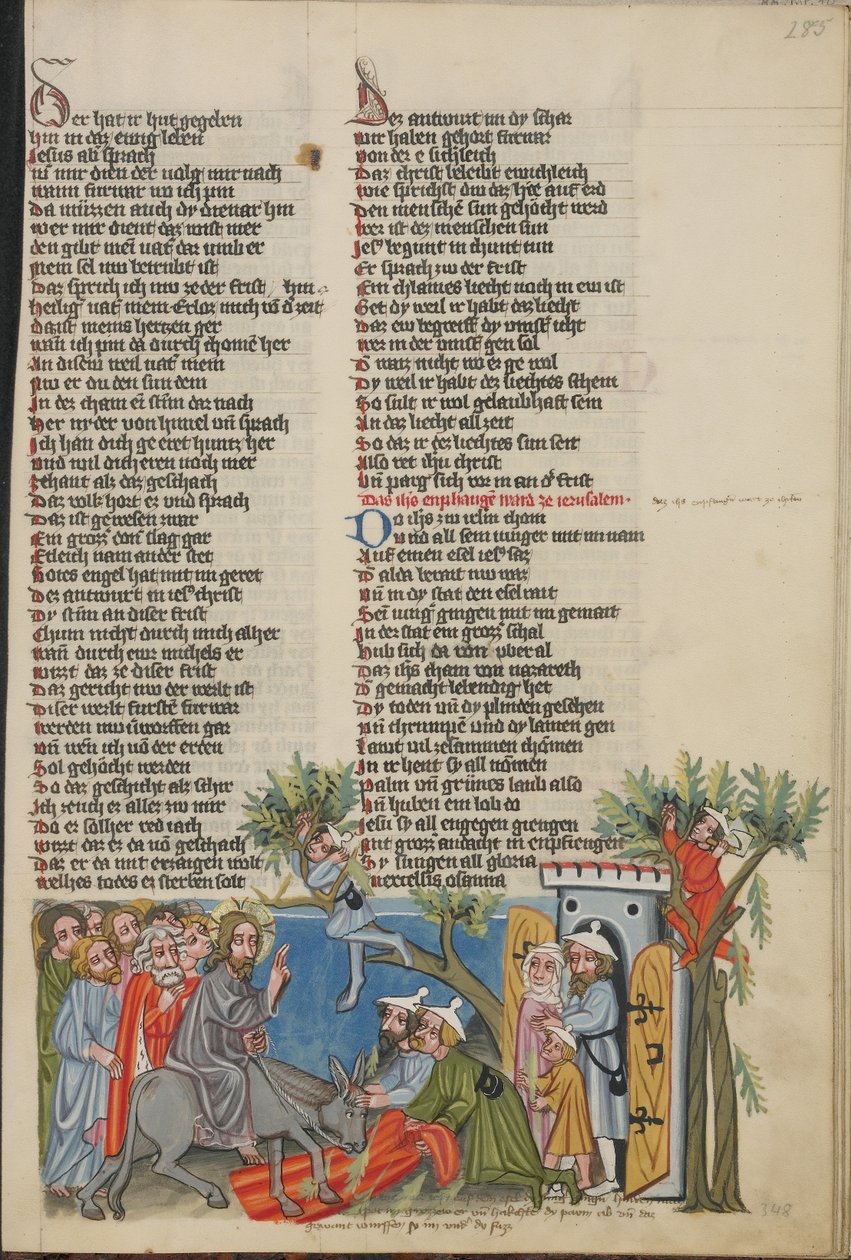 285
Der hat ir hut gegeben
hin in daz ewig leben
Jesus ab sprach
wˀ mir dien der uolg mir nach
wann furwar wo ich pin
Da müzzen auch dy dienar hin
wer mir dient daz wist mer
den gibt mein uatˀ dar umb er
Mein sel nw betrubt ist
Daz sprich ich nw ze der frist
Heilig uatˀ mein Erloz mich vō dˀ zeit
daz ist meins hertzen ger
wan ich pin da durch chomē her
An disem weil uatˀ mein
Nw er du den sun dein
In dez cham ein stim dar nach
Her nyder von himel vn̄ sprach
Ich han dich ge eret huntz her
vnd wil dich eren noch mer
zehant alz daz geschach
Daz volk hort ez vnd sprach
Daz ist gewesen zwar
Ein grozz don slag gar
Etleich nam ander stet
Gotes engel hat mit im geret
Dez antwurt in iesˀ christ
Dy stim an diser frist
Chum nicht durch mich alher
wan̄ durch ewr michels er
wizzt daz ze diser frist
Daz gericht nw der werlt ist
Diser werlt furste furwar
werden nw uˀworffen gar
vn̄ wen ich vō der erden
Sol gehöcht werden
So daz geschicht alz schir
Ich zeuch ez allez zw mir
Do er sölher red iach
wizzt daz ez da vō geschach
Daz er da mit erzaigen wolt
welhes todes er sterben solt
Dez antwurt im dy schar
wir haben gehort furwar
von der e sichleich
Daz christ beleibt ewichleich
wie sprichst dw daz hie auf erd
Den menschē sun gehöcht werd
wer ist dez menschen sun
Jesˀ begunt in chunt tun
Er sprach zw der frist
Ein chlaines liecht noch in ew ist
Get dy weil ir habt daz liecht
Daz ew begreiff dy vinstˀ icht
wer in der vinstˀ gen sol
Dˀ waiz nicht wo er ge wol
Dy weil ir habt dez liechtes schein
So sült ir wol gelaubhaft sein
An daz liecht all zeit
So daz ir dez liechtes sun seit
Also ret ihū christ
Vn̄ parg sich vor in an dˀ frist
Das ihs enphangē ward ze ierusalem
daz ihs enpfangn wart ze ihrlm
Do ihs zw irlm chom
vnd all sein iunger mit im nam
Auf einen esel iesˀ saz
Dˀ alda berait nw waz
Vn̄ in dy stat den esel rait
Sein iungˀ gingen mit im gemait
In der stat ein grozz schal
Hub sich da von vberal
Daz ihs cham von nazareth
Dˀ gemacht lebendig het
Dy toden vn̄ dy plinden gesehen
vn̄ chrumpē vnd dy lamen gen
Lawt vil zesammen chömen
In ir hent sy all nömen
Palm vn̄ grünes laub also
Vn̄ huben ein lob do
Jesu sy all engegen giengen
Mit grozz andacht in enpfiengen
Sy sungen all gloria
In excelsis osanna
348